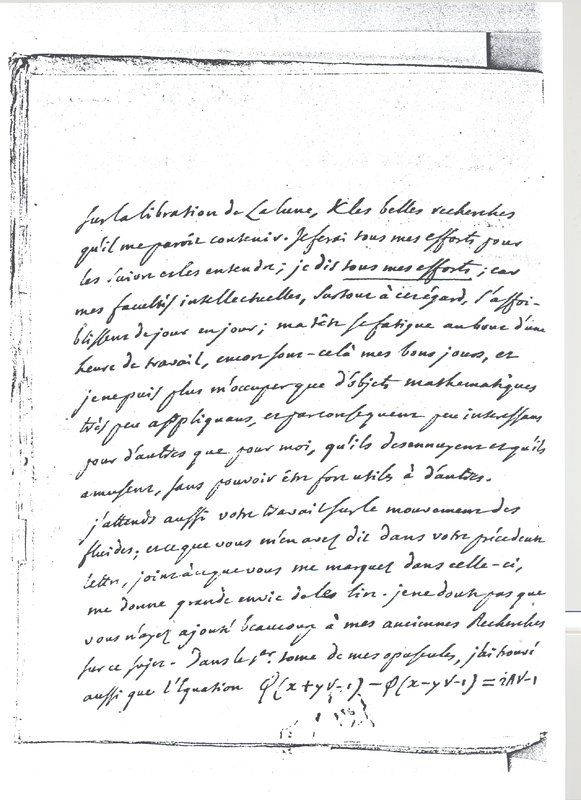 sur la libration de La lune, & les belles recherches
qu'il me paroit contenir. Je ferai tous mes efforts pour
les suivre et les entendre; je dis tous mes efforts; car
mes facultés intellectuelles, surtout à cet égard, s'affoi-
blissent de jour en jour; ma tête se fatigue au bout d'une
heure de travail, encore sont-celà mes bons jours, et
je ne puis plus m'occuper que d'objets mathematiques
très peu appliquans, et par consequent peu interessans
pour d'autres que pour moi, qu'ils desennuyent et qu'ils
amusent, sans pouvoir être fort utiles à d'autres.
j'attends aussi votre travail sur le mouvement des
fluides; et ce que vous m'en avez dit dans votre précédente
lettre, joint à ce que vous me marquez dans celle-ci,
me donne grande envie de le lire. je ne doute pas que
vous n'ayez ajouté beaucoup à mes anciennes Recherches
sur ce sujet. Dans le 1er. tome de mes opuscules, j'ai trouvé
aussi que l'Equation φ(x+y√-1) - φ(x-y√-1) = 2A√-1